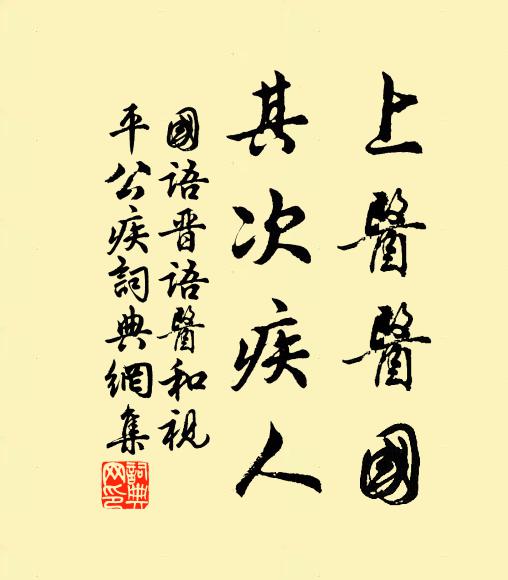 上醫醫國
其次疾人
國語晋語醫和視
平公疾詞典網集
詞典
网印